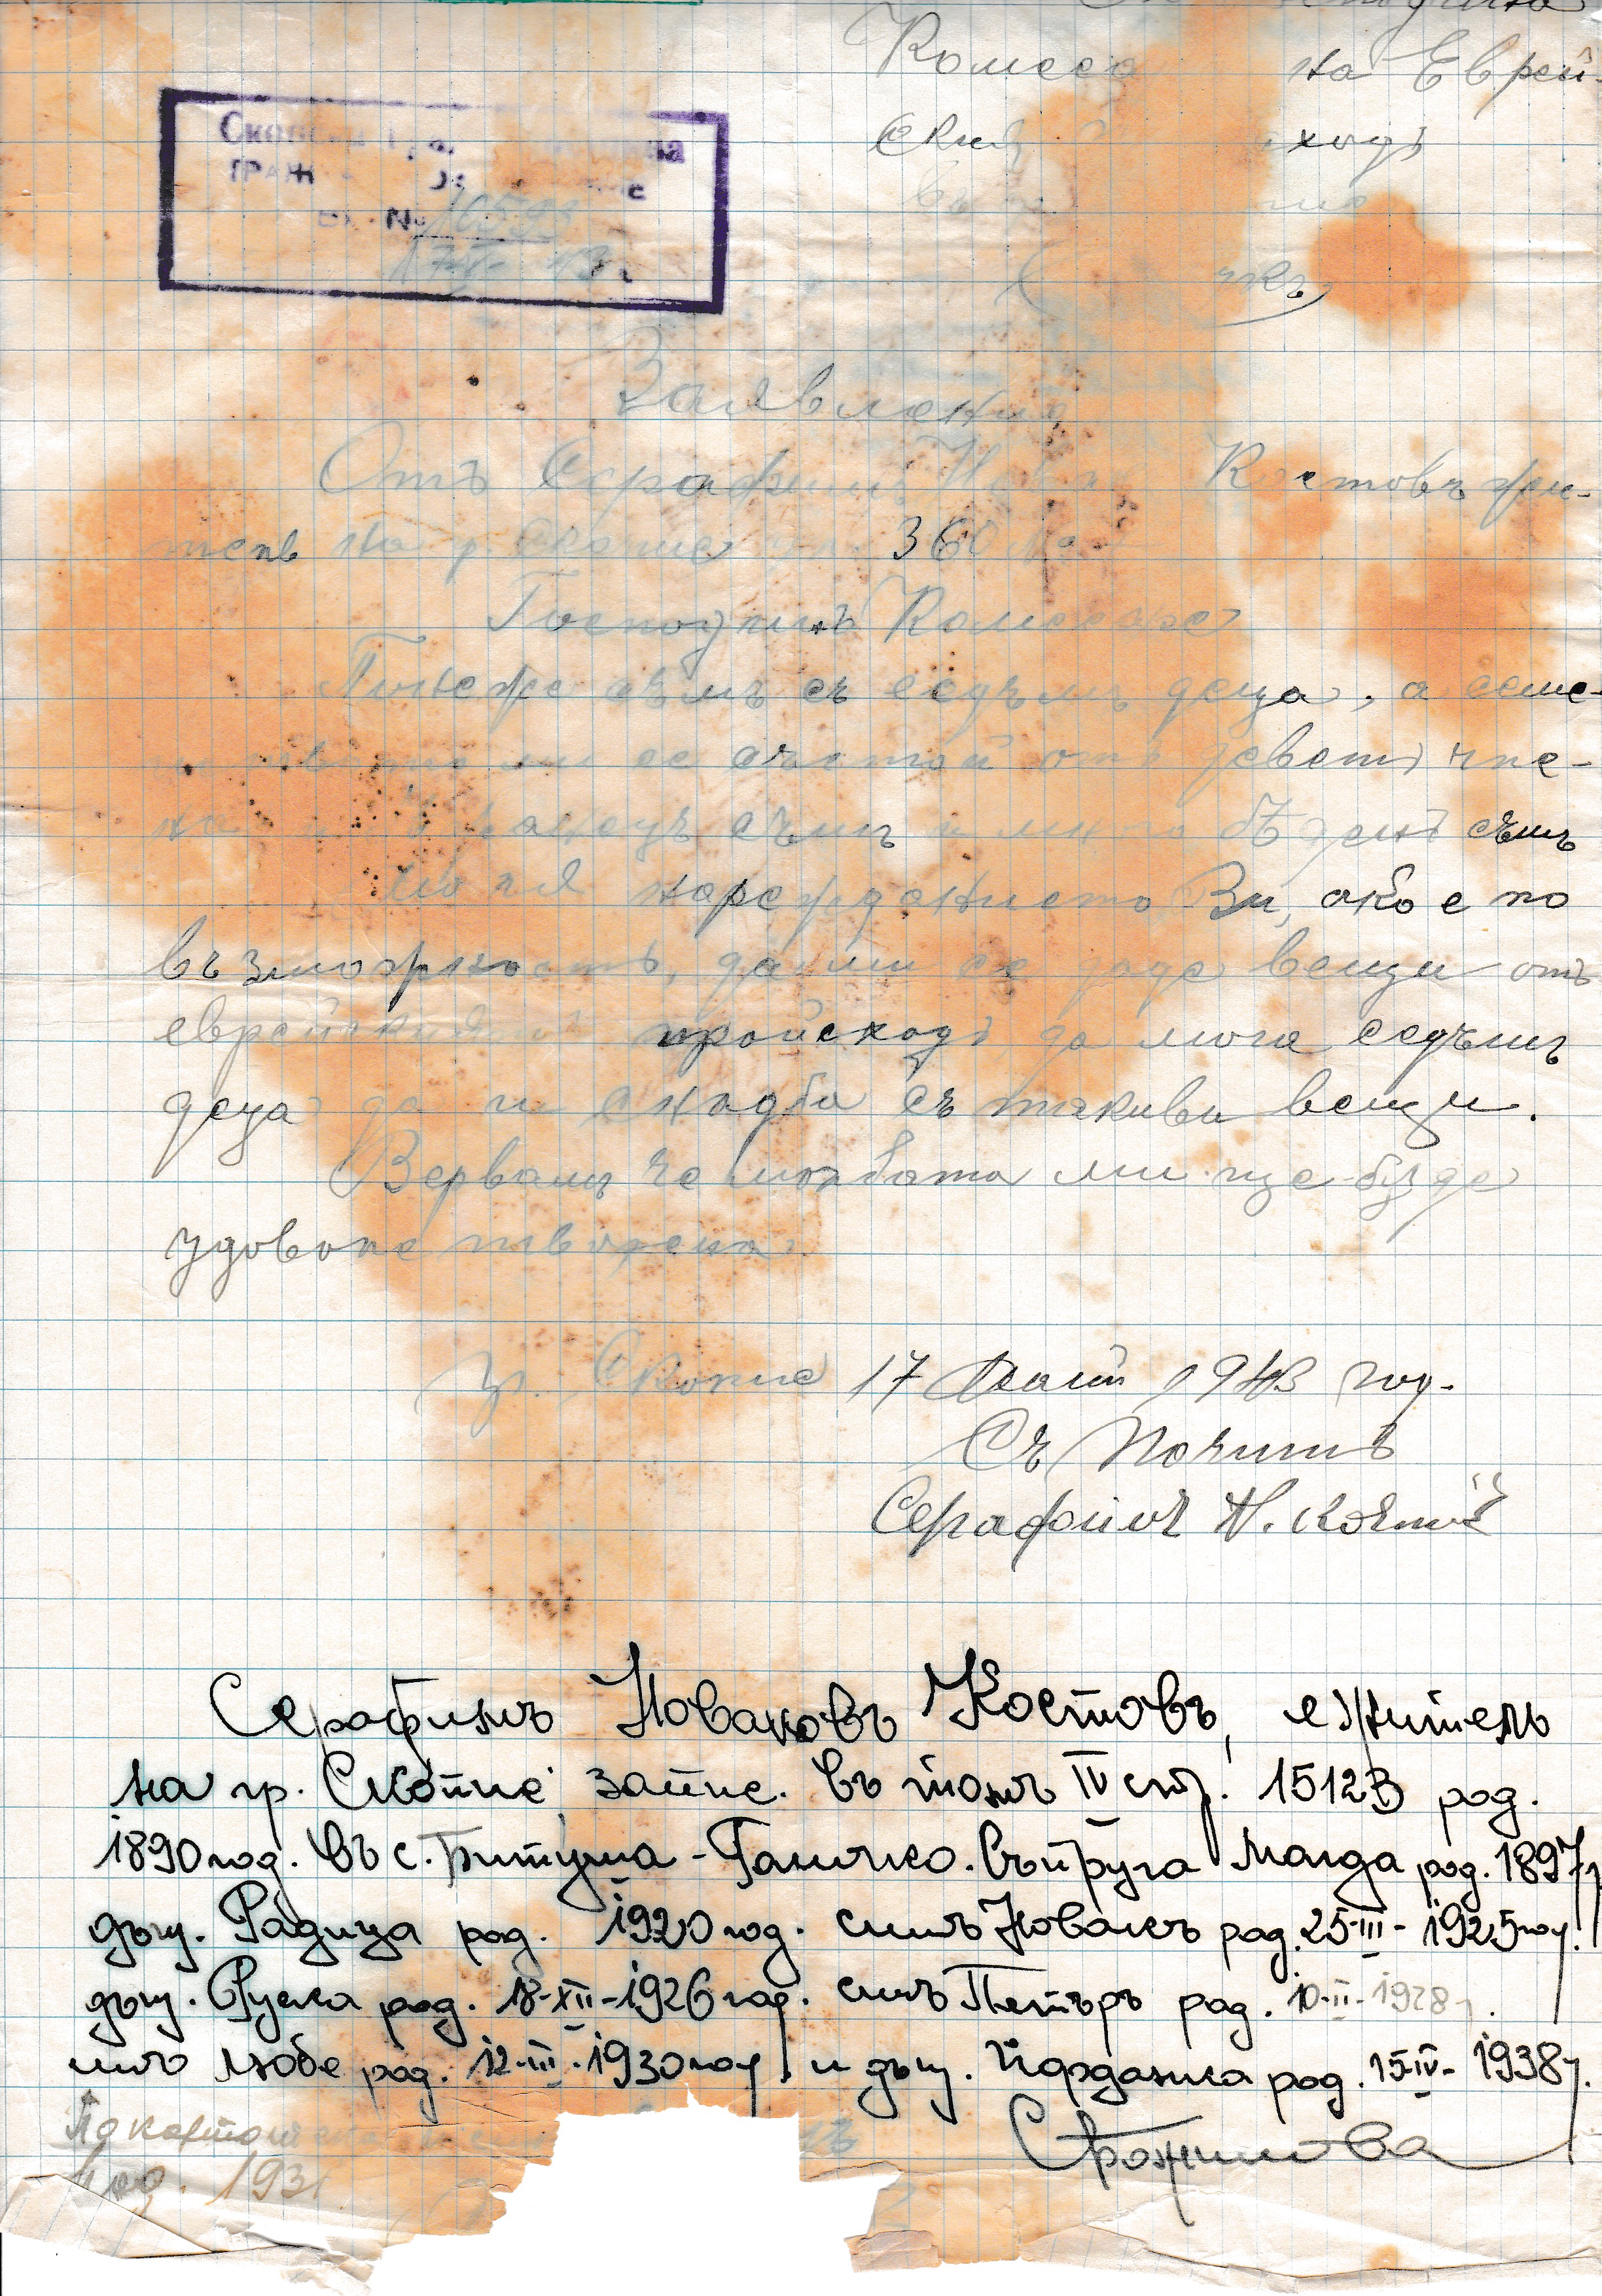 на Еврей-
ходъ
№ 16593
Заявление
Отъ Серафимъ Костовъ жи-
тель на гр. Скопие 360
Господинъ Комесаре
Понеже съмъ съ седъмъ деца, а семе-
ми се състои отъ деветь чле-
на съмъ и много бѣденъ съмъ
моля нареждането Ви, ако е по
възможность, да ми се даде вещи отъ
еврейския происходъ да мога седъмъ
деца да ги снабдя съ такива вещи.
Вервамъ че молбата ми ще бѫде
удоволетворена.
гр. Скопие 17 Май 1943 год.
Съ Почитъ
Серафимъ Н. Костовъ
Серафимъ Новаковъ Костовъ, е жителъ
на гр. Скопие запис. въ томъ IV стр. 1512 В род.
1890 год. въ с. Битуша - Галичко. Съпруга Магда род. 1897 г.
дъщ. Радица род. 1920 год. синъ Новакъ род. 25-III-1925 год.
дъщ. Руска род. 18-XII-1926 год. синъ Петъръ род. 10-II-1928 г.
синъ Любе род. 12-III-1930 год и дъщ. Йорданка род. 15-IV-1938 г.
193